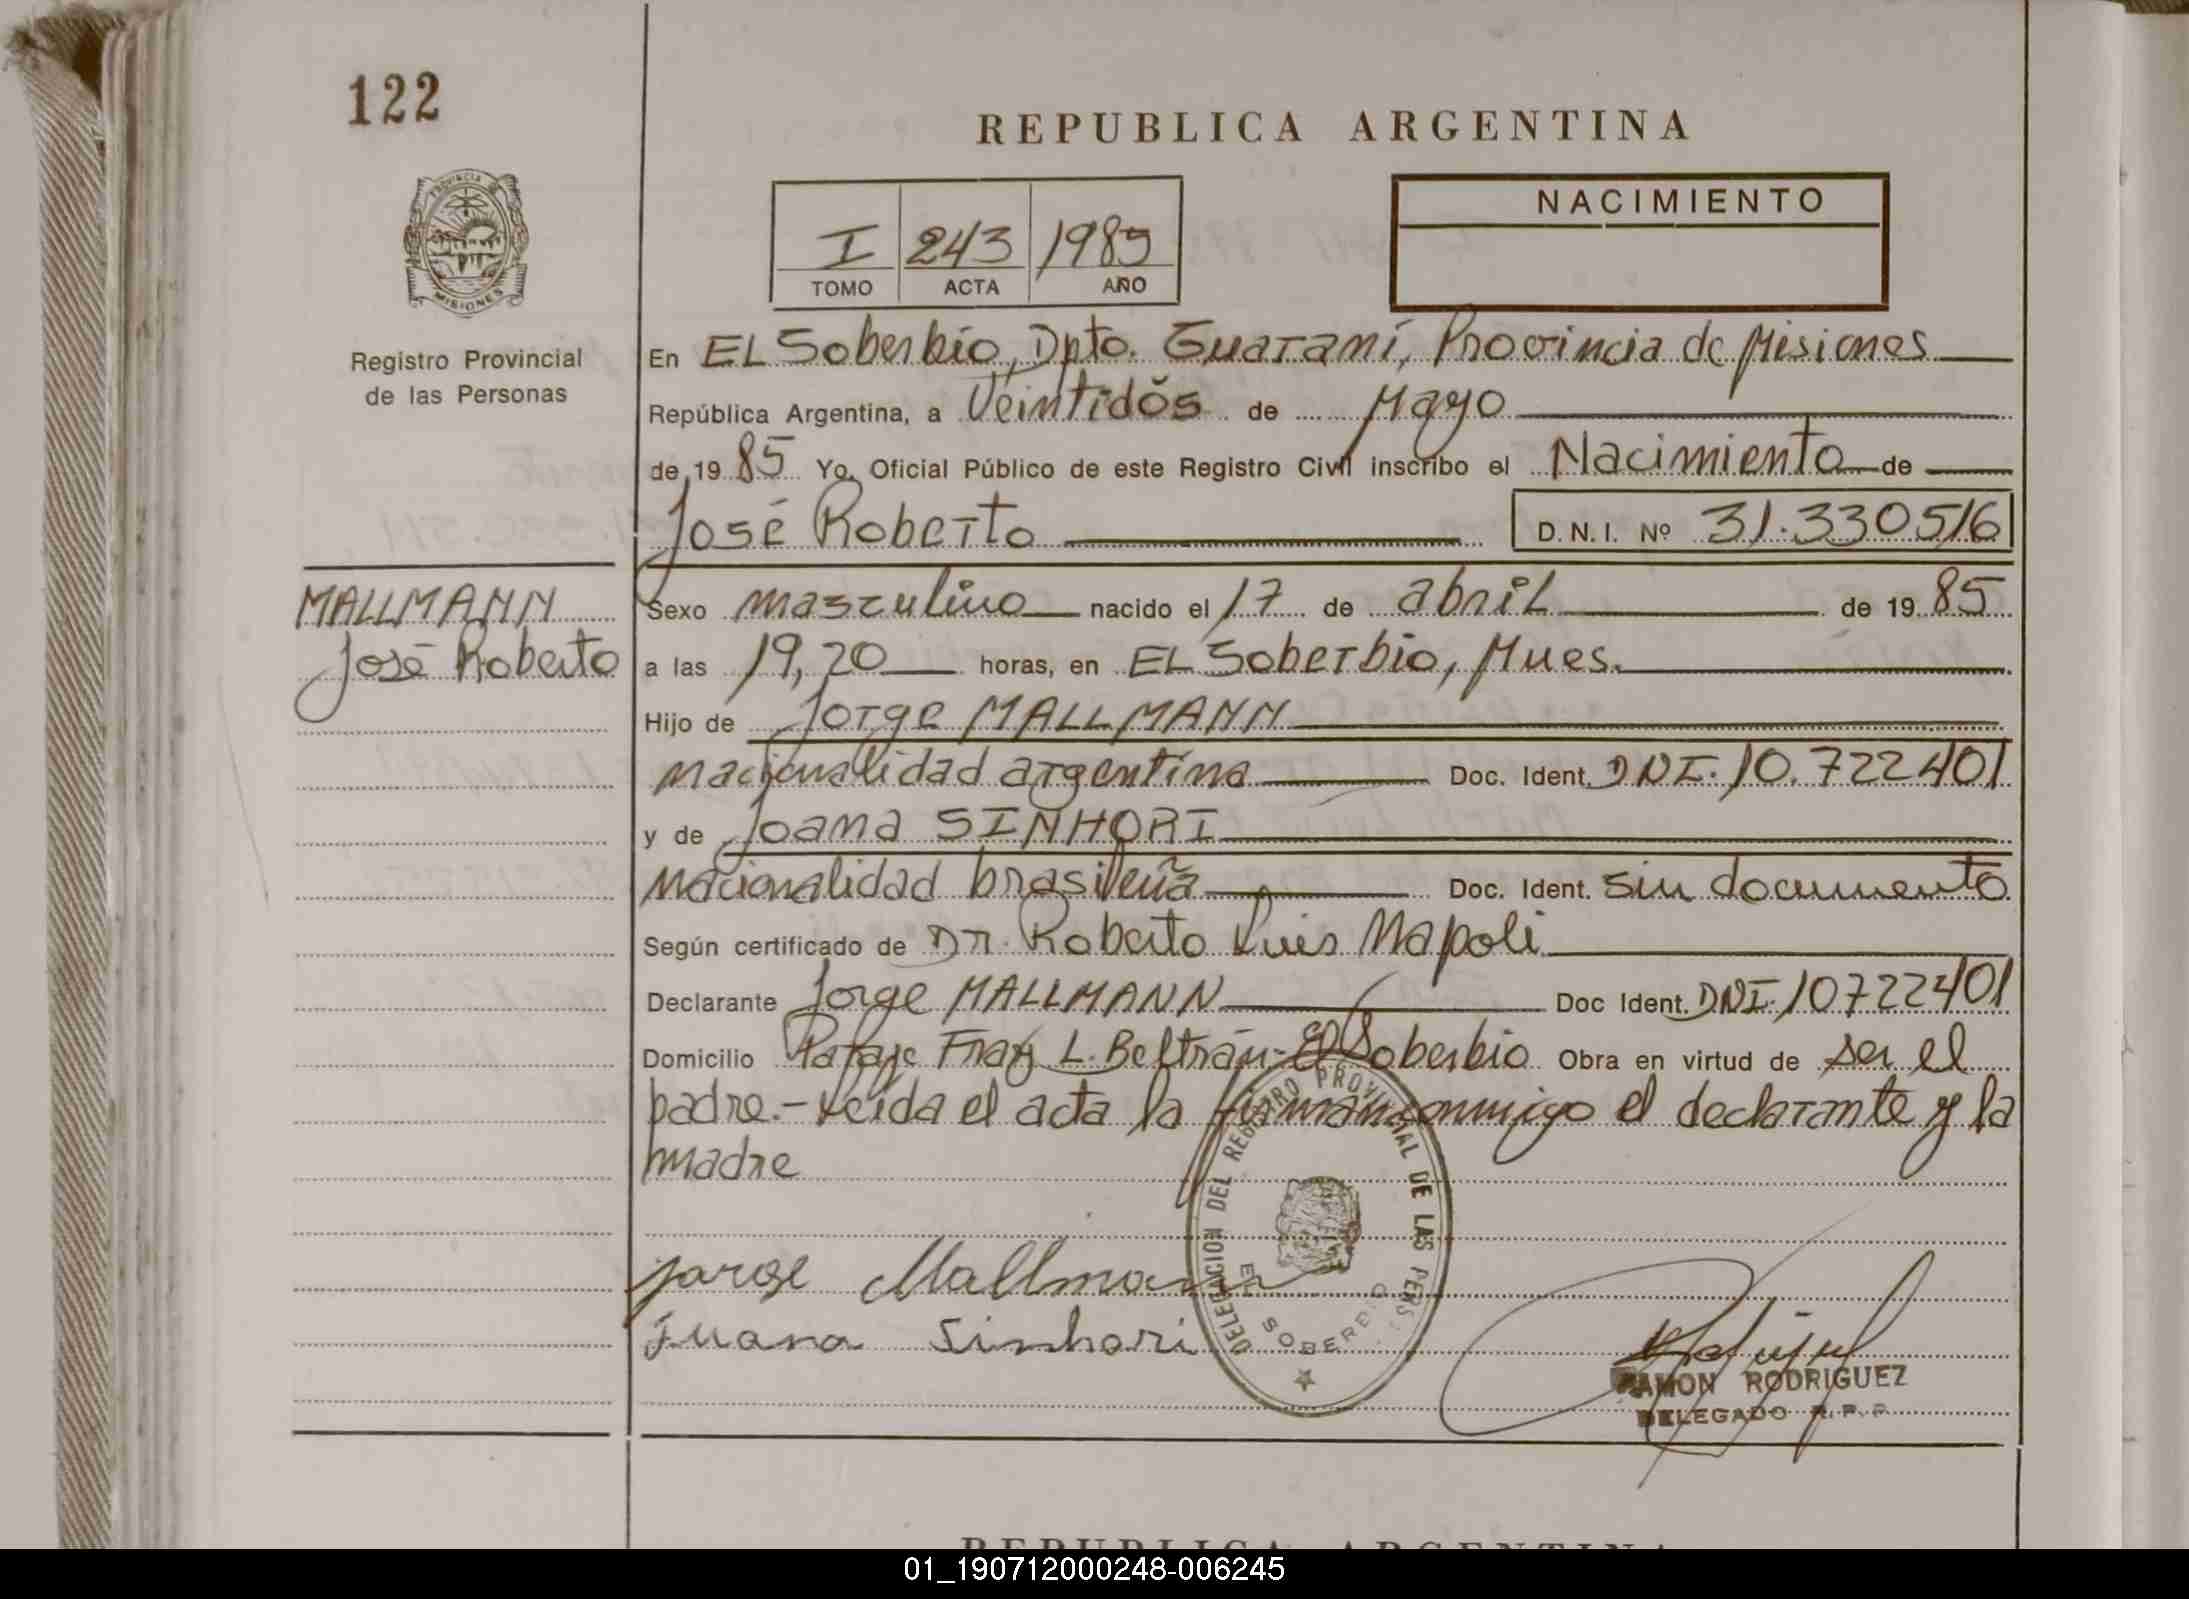 122
REPUBLICA ARGENTINA
NACIMIENTO
I 243 1985
TOMO ACTA AÑO
PROVINCIA DE
MISIONES
Registro Provincial
de las Personas
En EL Soberbio, Dpto. Guaraní, Provincia de Misiones
República Argentina, a Veintidós de Mayo
de 19 85 Yo, Oficial Público de este Registro Civil inscribo el Nacimiento de
José Roberto D. N. I. Nº 31.330516
MALLMANN
José Roberto
Sexo masculino nacido el 17 de abril de 19 85
a las 19,20 horas, en EL Soberbio, Mnes.
Hijo de Jorge MALLMANN
nacionalidad argentina Doc. Ident. DNI. 10.722401
y de Joana SINHORI
nacionalidad brasileña Doc. Ident. sin documento
Según certificado de Dr. Roberto Luis Napoli
Declarante Jorge MALLMANN Doc Ident. DNI. 10722401
Domicilio Paraje Fray L. Beltrán- El Soberbio Obra en virtud de ser el
padre.- Leída el acta la firman conmigo el declarante y la
madre
DELEGACION DEL REGISTRO PROVINCIAL DE LAS PERS.
EL SOBERBIO
Jorge Mallmann
Juana Sinhori
RAMON RODRIGUEZ
DELEGADO R.P.P.
REPUBLICA ARGENTINA
01_190712000248-006245